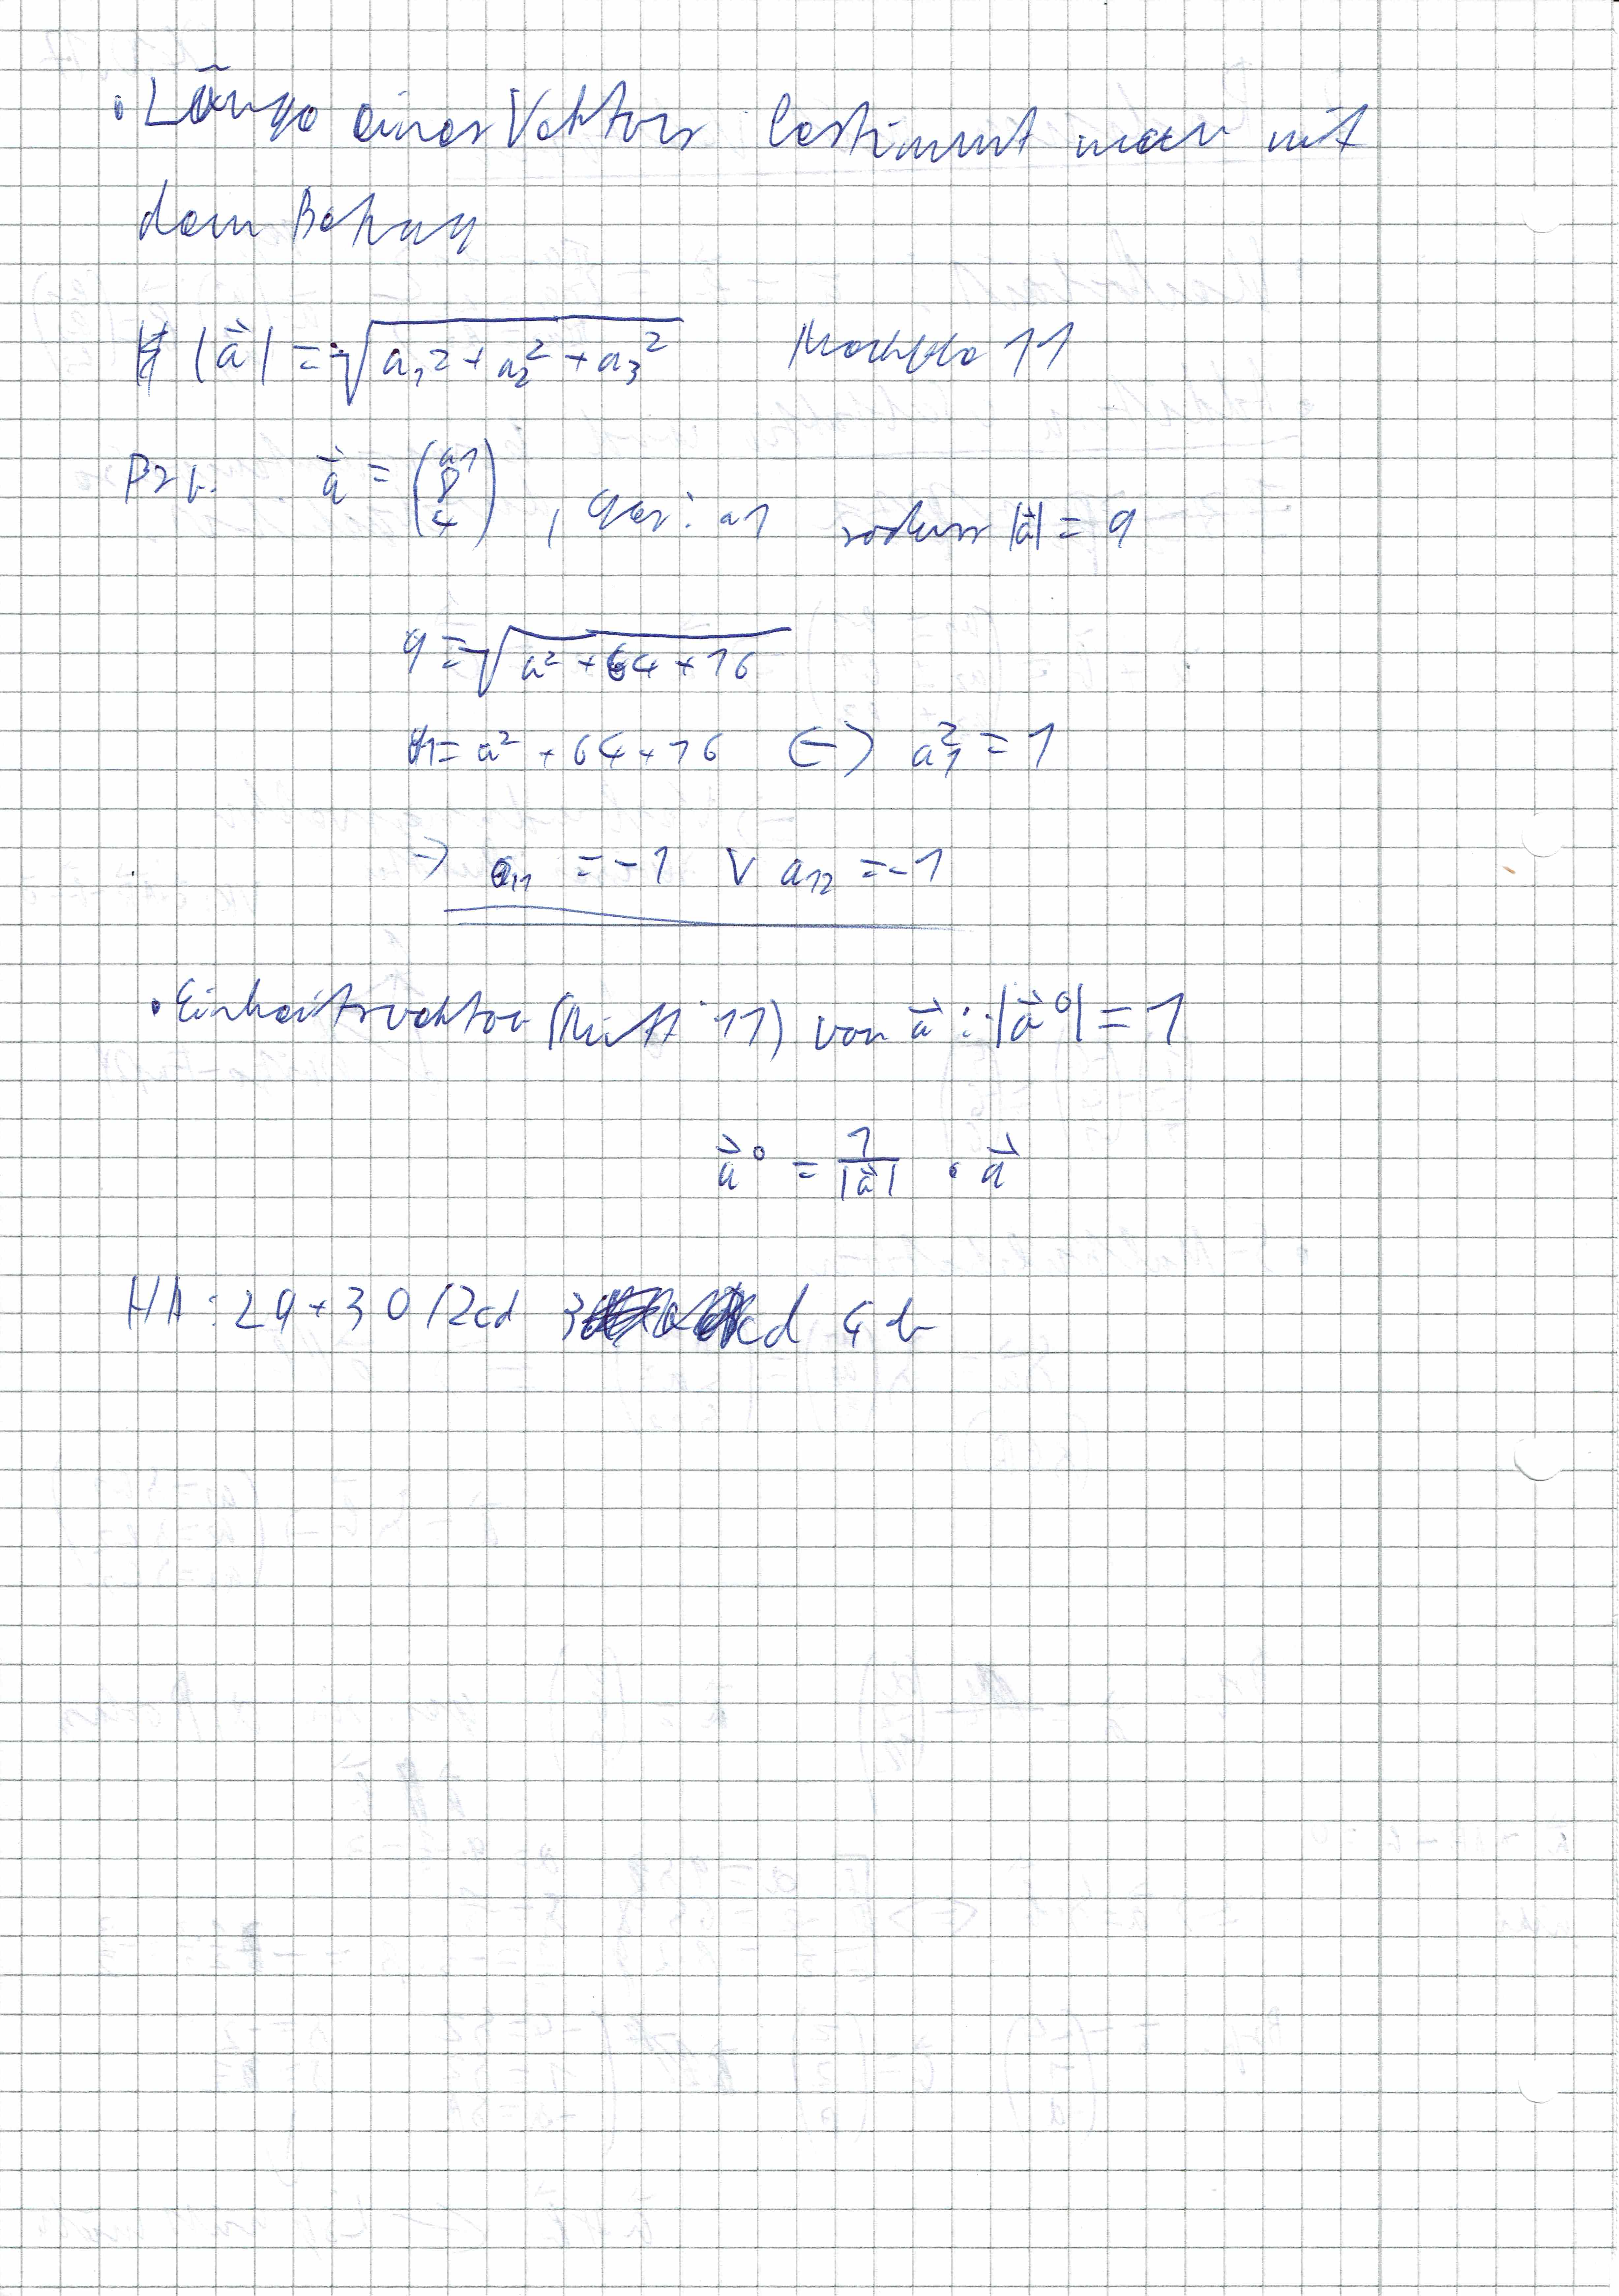 • Länge eines Vektors bestimmt man mit
dem Betrag
|a⃗| = √(a₁2 + a₂² + a₃²) Merkhilfe 11
Bsp. a⃗ = (a1 8 4) , Ges: a1 sodass |a⃗| = 9
9 = √(a² + 64 + 16)
81 = a² + 64 + 16 <-> a₁² = 1
-> a₁₁ = -1 ∨ a₁₂ = -1
• Einheitsvektor (Mhilfe 11) von a⃗ : |a⃗⁰| = 1
a⃗⁰ = 1/|a⃗| • a⃗
HA: 29 + 30 / 2cd 3 cd 4 b